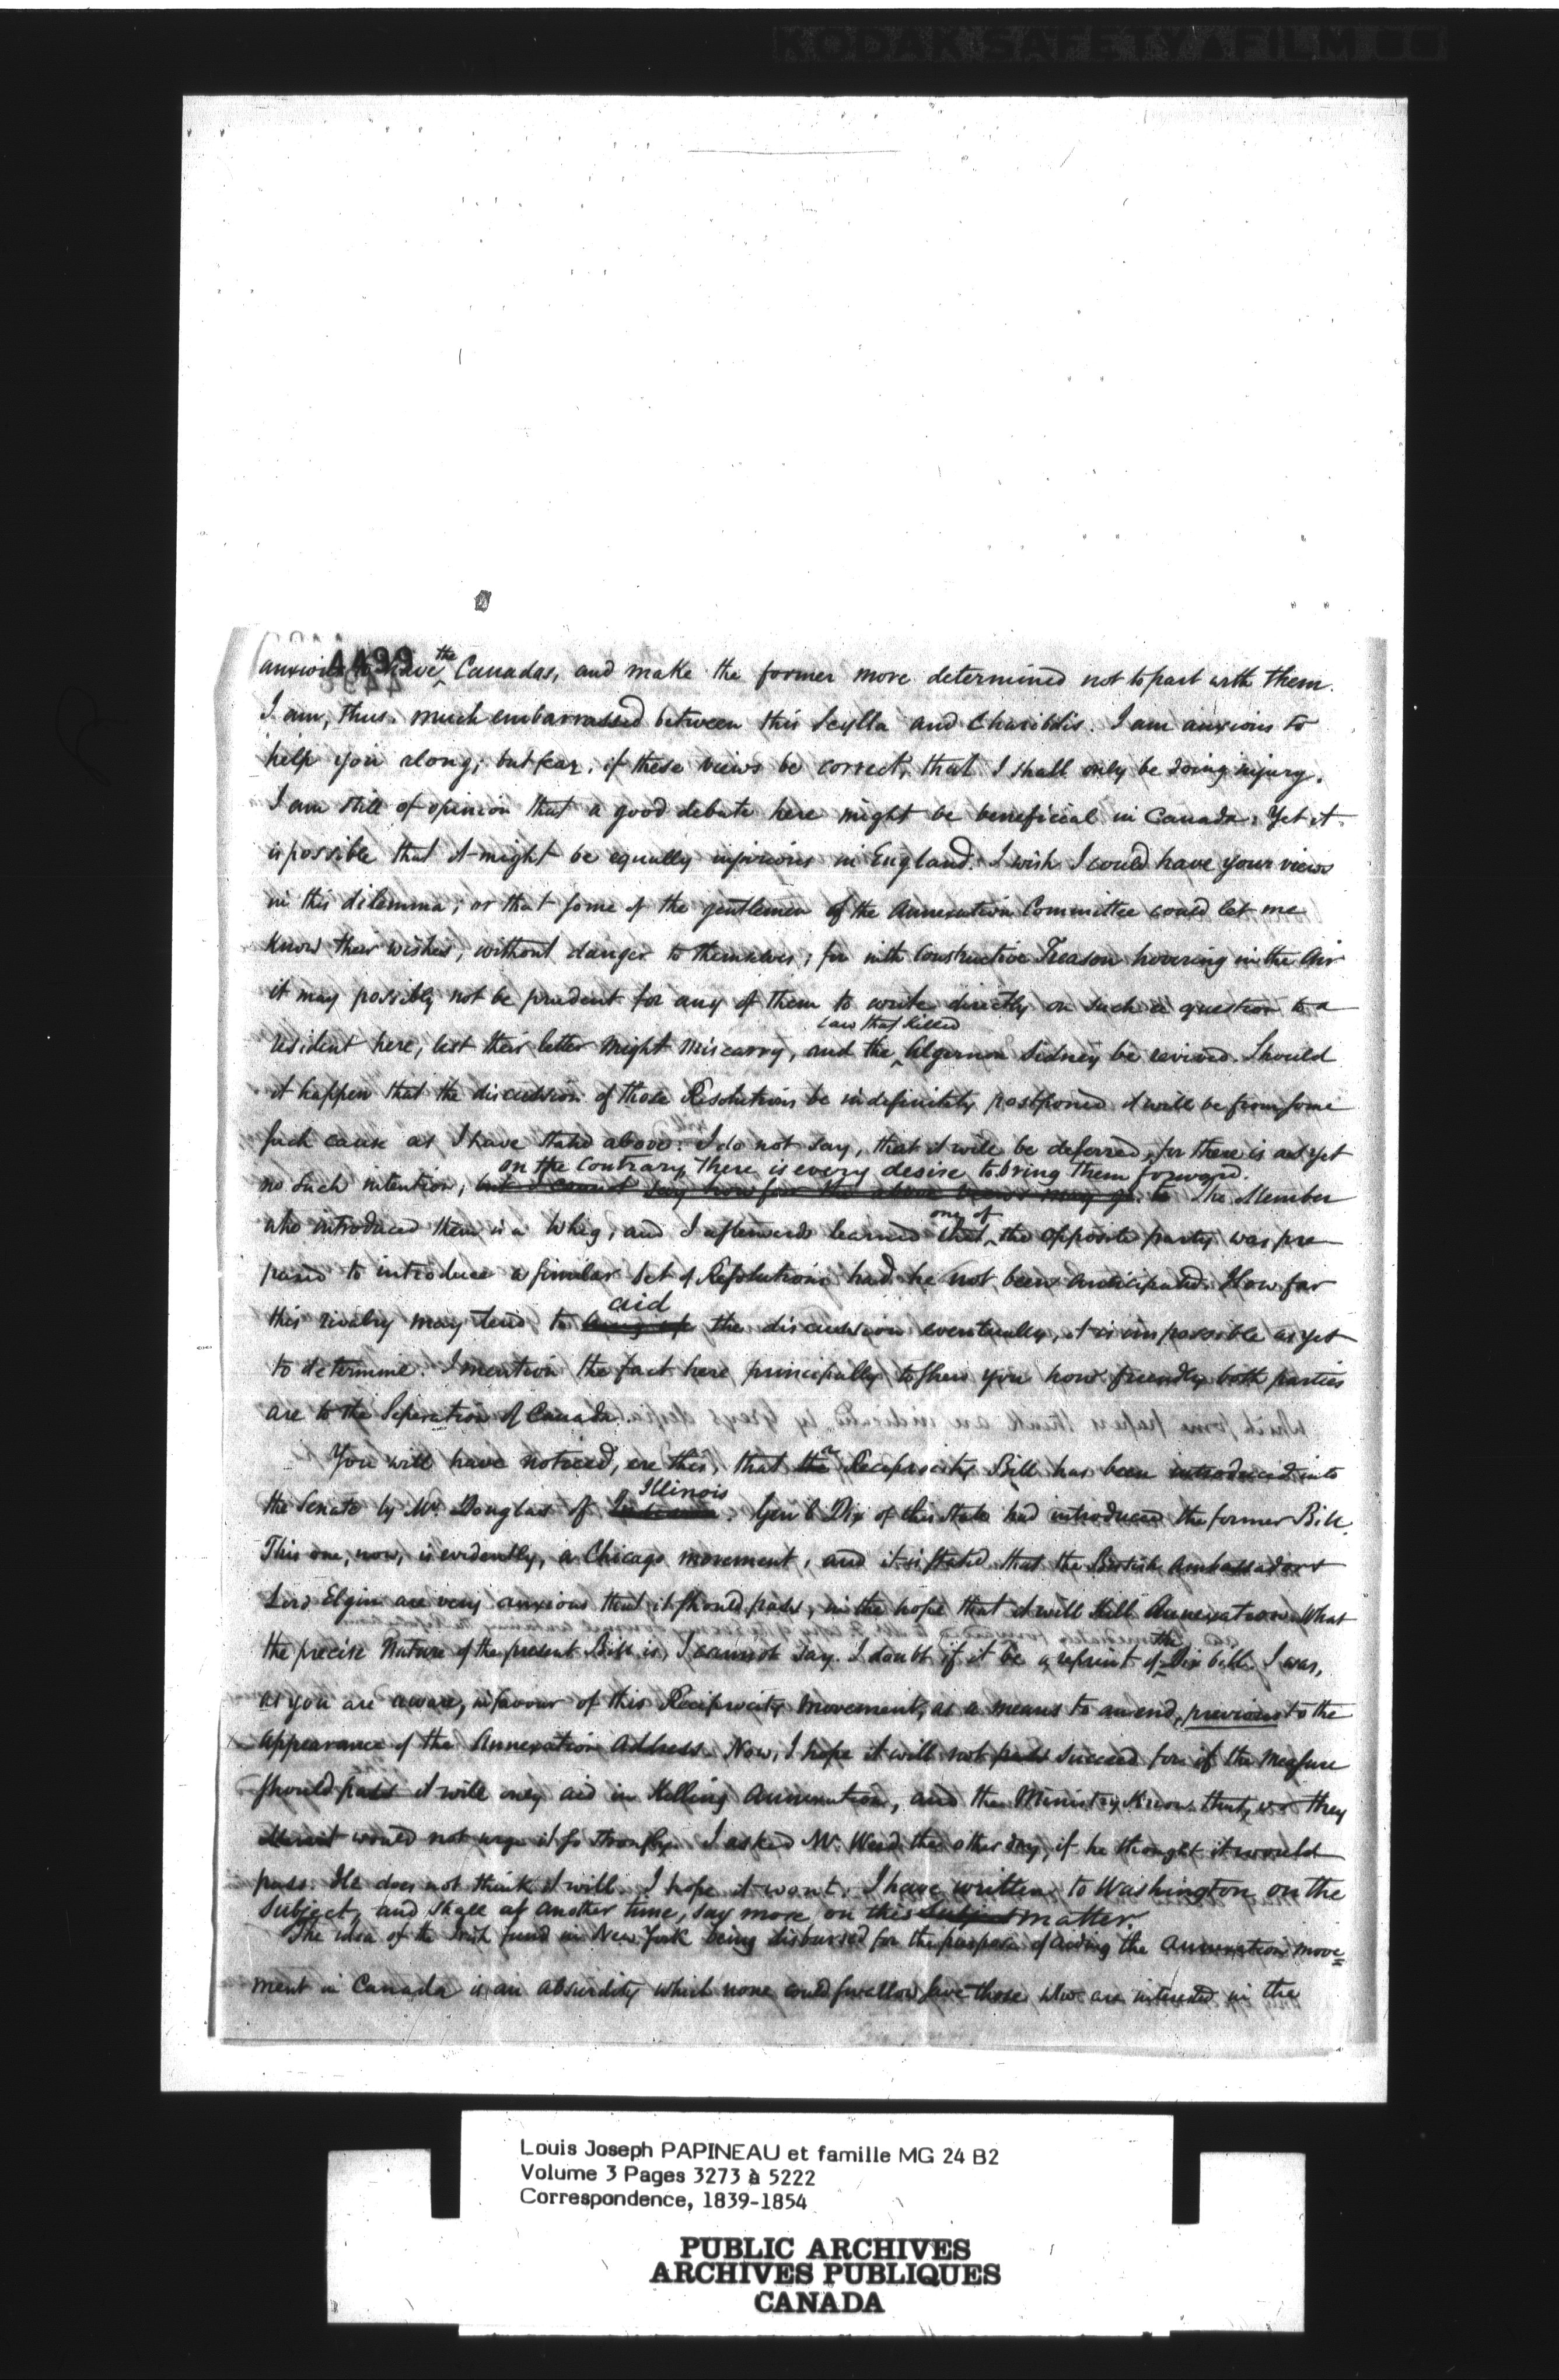 KODAK SAFETY FILM
4499
anxious to have the Canadas, and make the former more determined not to part with them.
I am, thus, much embarrassed between this Scylla and Charibdis. I am anxious to
help you along; but fear, if these views be correct, that I shall only be doing injury.
I am still of opinion that a good debate here might be beneficial in Canada; Yet it
is possible that it might be equally injurious in England. I wish I could have your views
in this dilemma; or that some of the gentlemen of the Annexation Committee could let me
know their wishes, without danger to themselves; for with Constructive Treason hovering in the Air
it may possibly not be prudent for any of them to write directly on such a question to a
law that killed
resident here, lest their letter might miscarry, and the Algernon Sidney be revived. Should
it happen that the discussion of those Resolutions be indefinitely postponed it will be from some
such cause as I have stated above. I do not say, that it will be deferred, for there is as yet
on the contrary, there is every desire to bring them forward.
no such intention; but I cannot say how far the above views may go. The Member
one of
who introduced them is a Whig, and I afterwards learned that the opposite party was pre
pared to introduce a similar set of Resolutions had he not been anticipated. How far
aid
this rivalry may tend to the discussion eventually, it is impossible as yet
to determine. I mention the fact here principally to shew you how friendly both parties
are to the Separation of Canada.
You will have noticed, ere this, that the a Reciprocity Bill has been introduced into
Illinois
the Senate by Mr. Douglas of Indiana. Genl Dix of this State had introduced the former Bill.
This one, now, is evidently, a Chicago movement, and it is stated that the British Ambassador &
Lord Elgin are very anxious that it should pass, in the hope that it will kill Annexation. What
the
the precise nature of the present Bill is, I cannot say. I doubt if it be a reprint of Dix bill. I was,
as you are aware, in favour of this Reciprocity movement, as a means to an end, previous to the
appearance of the Annexation Address. Now, I hope it will not pass succeed for if the measure
should pass it will only aid in killing Annexation, and the Ministry know that, or they
would not urge it so strongly. I asked Mr. Weed the other day, if he thought it would
pass. He does not think it will. I hope it wont. I have written to Washington on the
subject, and shall at another time, say more on this subject matter.
The idea of the Irish fund in New York being disbursed for the purpose of aiding the Annexation move=
ment in Canada is an absurdity which none could swallow save those who are interested in the
Louis Joseph PAPINEAU et famille MG 24 B2
Volume 3 Pages 3273 à 5222
Correspondence, 1839-1854
PUBLIC ARCHIVES
ARCHIVES PUBLIQUES
CANADA